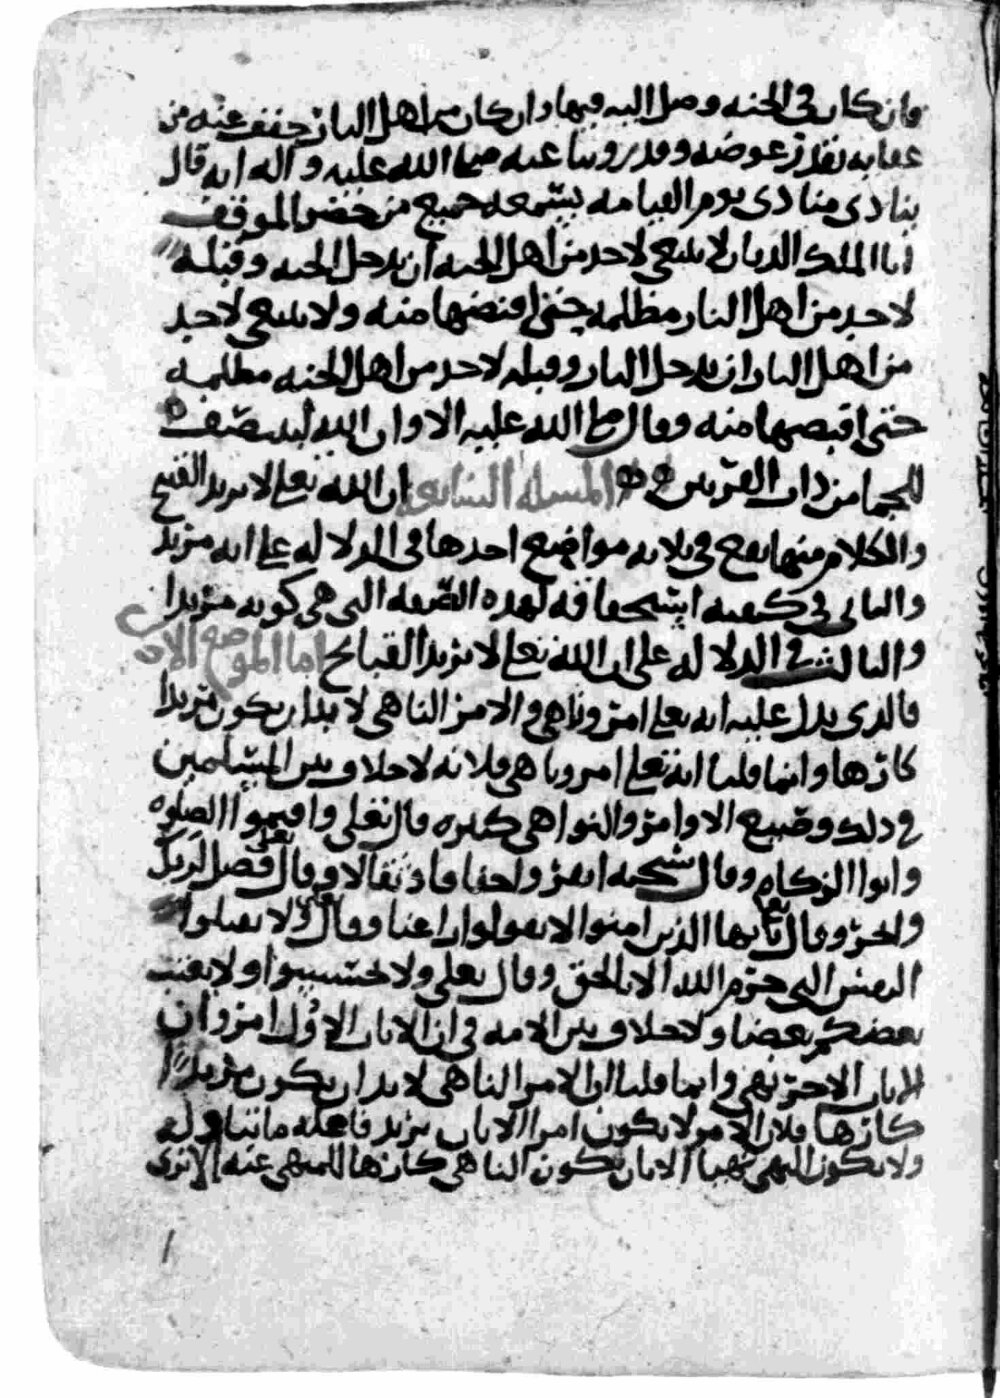 وان كان في الجنه وصل اليه فيها وان كان من اهل النار خفف عنه من
عقابه بقدر عوضه وقد روينا عنه صلى الله عليه واله انه قال
ينادي منادي يوم القيامه يسمعه جميع من حضر الموقف
انا الملك الديان لا ينبغي لاحد من اهل الجنه ان يدخل الجنه وقبله
لاحد من اهل النار مظلمه حتى اقتصها منه ولا ينبغي لاحد
من اهل النار ان يدخل النار وقبله لاحد من اهل الجنه مظلمه
حتى اقتصها منه وقال صلى الله عليه الا وان الله لينتصف
للجما من ذات القرنين المسله السابعه ان الله تعلى لا يريد القبيح
والكلام منها يقع في ثلاثه مواضع احدها في الدلاله على انه مريد
والثاني في كيفيه استحقاقه لهذه الصفه التي هي كونه مريدا
والثالث في الدلاله على ان الله تعلى لا يريد القبائح اما الموضع الاول
فالذي يدل عليه انه تعلى امر وناهي والامر الناهي لا بد ان يكون مريدا
كارها وانما قلنا انه تعلى امر وناهي فلانه لا خلاف بين المسلمين
في ذلك وجميع الاوامر والنواهي كثيره قال تعلى واقيموا الصلوه
واتوا الزكاه وقال سبحنه انفروا خفافا وثقالا وقال تعلى فصل لربك
وانحر وقال تعلى يا ايها الذين امنوا لا تقولوا راعنا وقال ولا تقتلوا
النفس التي حرم الله الا بالحق وقال تعلى ولا تجسسوا ولا يغتب
بعضكم بعضا ولا خلاف بين الامه في ان الايات الاول امر وان
الايات الاخر نهي وانما قلنا ان الامر الناهي لا بد ان يكون مريدا
كارها فلان الامر لا يكون امرا الا بان يريد فاعله ما تناوله
ولا يكون النهي نهيا الا بان يكون الناهي كارها للمنهي عنه الا ترى